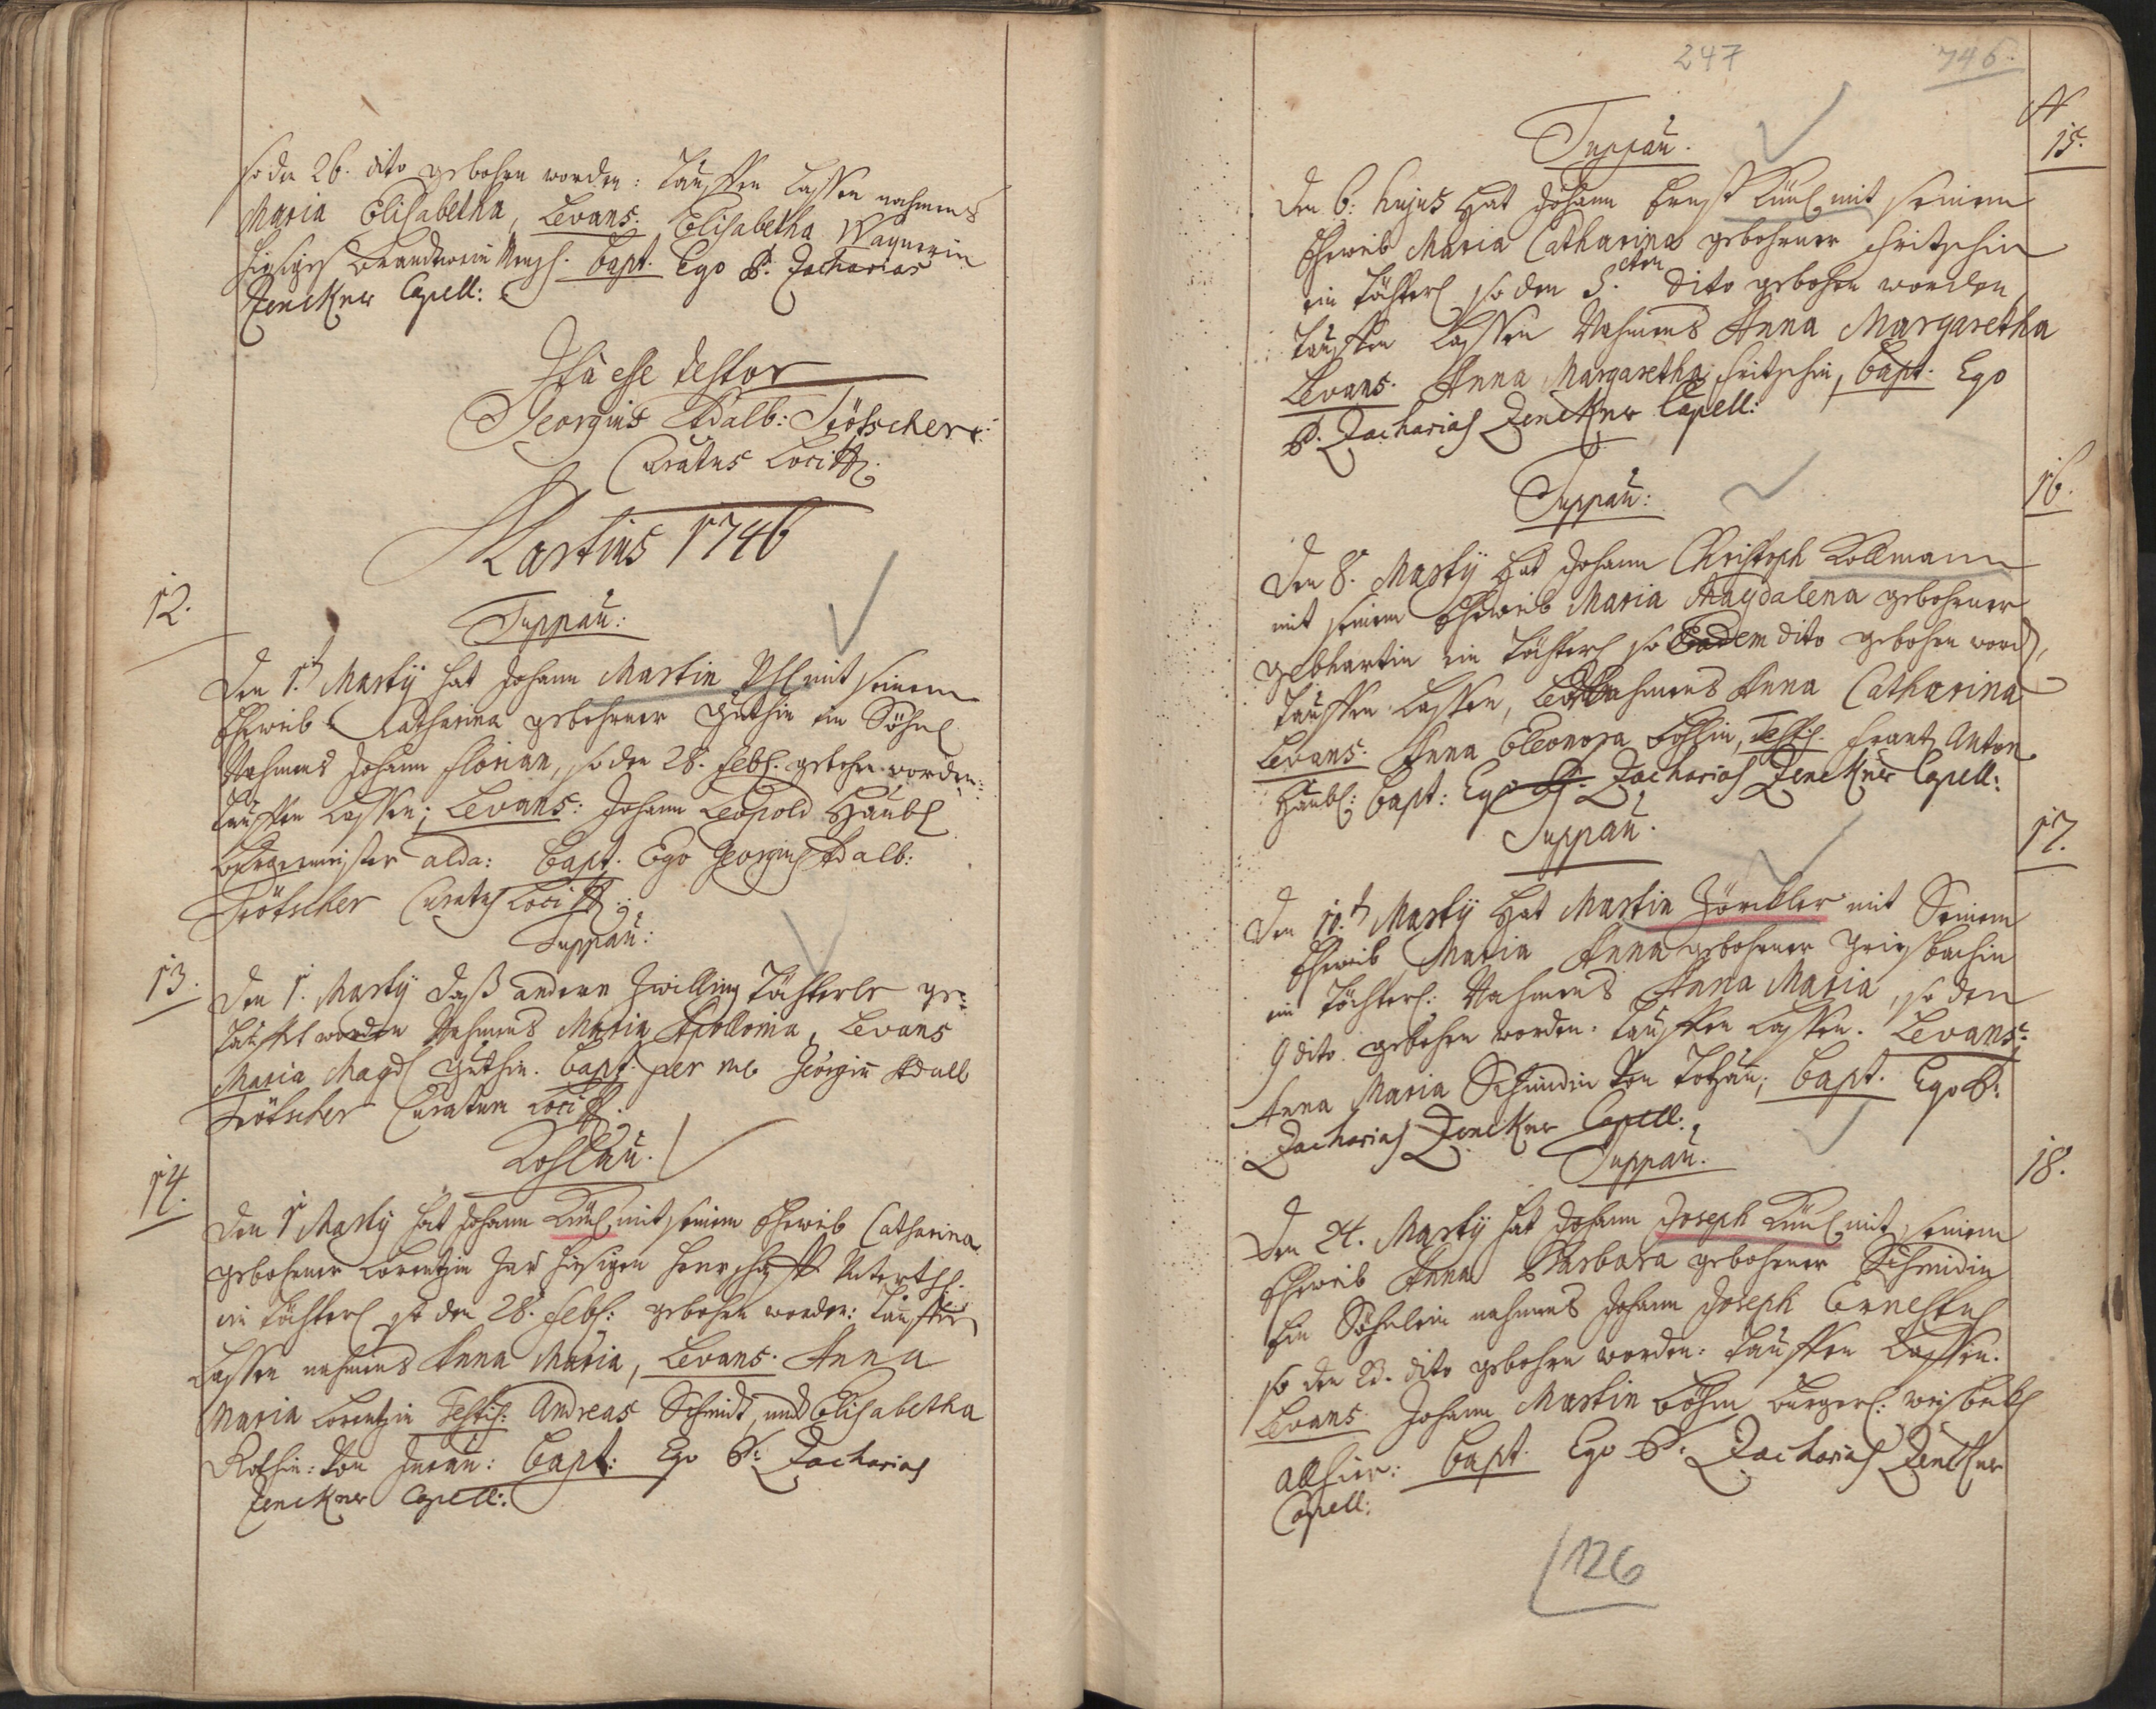 so den 26. dito gebohrn worden: tauffen lassen nahmens
Maria Elisabetha, Levans. Elisabetha Wagnerin
hiesiges Brandtwein bapt. Ego P. Zacharias
Zenckner Capell:
Ita esse testor
Georgius Adalb: Trötscher
Curatus Loci
Martius 1746
12.
Duppau:
Den 1.t Martij hat Johann Martin mit seinem
Eheweib Catharina gebohrner Güthin ein Söhnl
Nahmens Johann Florian, so den 28. Feb: gebohrn worden:
tauffen lassen; Levans: Johann Leopold Häubl
Burgermeister alda: bapt. Ego Georgius Adalb:
Trötscher Curatus Loci
Duppau:
13.
Den 1. Martij daß andere Zwilling Töchterle ge=
taufft worden Nahmens Maria Apollonia, Levans
Maria Magd: Güthin. bapt. per me Georgiu Adalb
Trötscher Curatum Loci
Koslau.
14.
Den 1 Martij hat Johann Küül mit seinem Eheweib Catharina
gebohrner Lorentzin der hiesigen Herrschafft Unterth:
ein Töchterl so den 28. Feb: gebohrn worden: tauffen
lassen nahmens Anna Maria, Levans. Anna
Maria Lorentzin Testis: Andreas Schmidt, und Elisabetha
Rothin: von bapt: Ego P. Zacharias
Zenckner Capell:
247
746.
N
15.
Duppau.
Den 6: hujus Hat Johann Ernst Küül mit seinem
Eheweib Maria Catharina gebohrner Fritzschin
ein Töchterl so den 5.ten dito gebohrn worden
tauffen lassen Nahmens Anna Margaretha
Levans. Anna Margaretha Fritzschin, bapt. Ego
P. Zacharias Zenckner Capell:
16.
Duppau:
Den 8. Martij Hat Johann Christoph Kollmann
mit seinem Eheweib Maria Magdalena gebohrner
Gebhartin ein Töchterl so Eodem dito gebohrn word,
tauffen lassen, nahmens Anna Catharina
Levans: Anna Eleonora Testis. Frantz Anton
Häubl: bapt: Ego P. Zacharias Zenckner Capell:
17.
Duppau.
Den 10.t Martij Hat Martin Zörckler mit Seinem
Eheweib Maria Anna gebohrner Griesbachin
ein Töchterl: Nahmens Anna Maria, so den
9 dito gebohrn worden: tauffen lassen. Levans:
Anna Maria Schmidin von Totzau; bapt. Ego P.
Zacharias Zenckner Capell:
18.
Duppau.
Den 24. Martij hat Johann Joseph Küül mit seinem
Eheweib Anna Barbara gebohrner Schmidin
Ein Söhnlein nahmens Johann Joseph Ernestus
so den 23. dito gebohrn worden: tauffen lassen.
Levans. Johann Martin Böhm Burgerl: weisbekh
allhier: bapt. Ego P. Zacharias Zenckner
Capell:
126